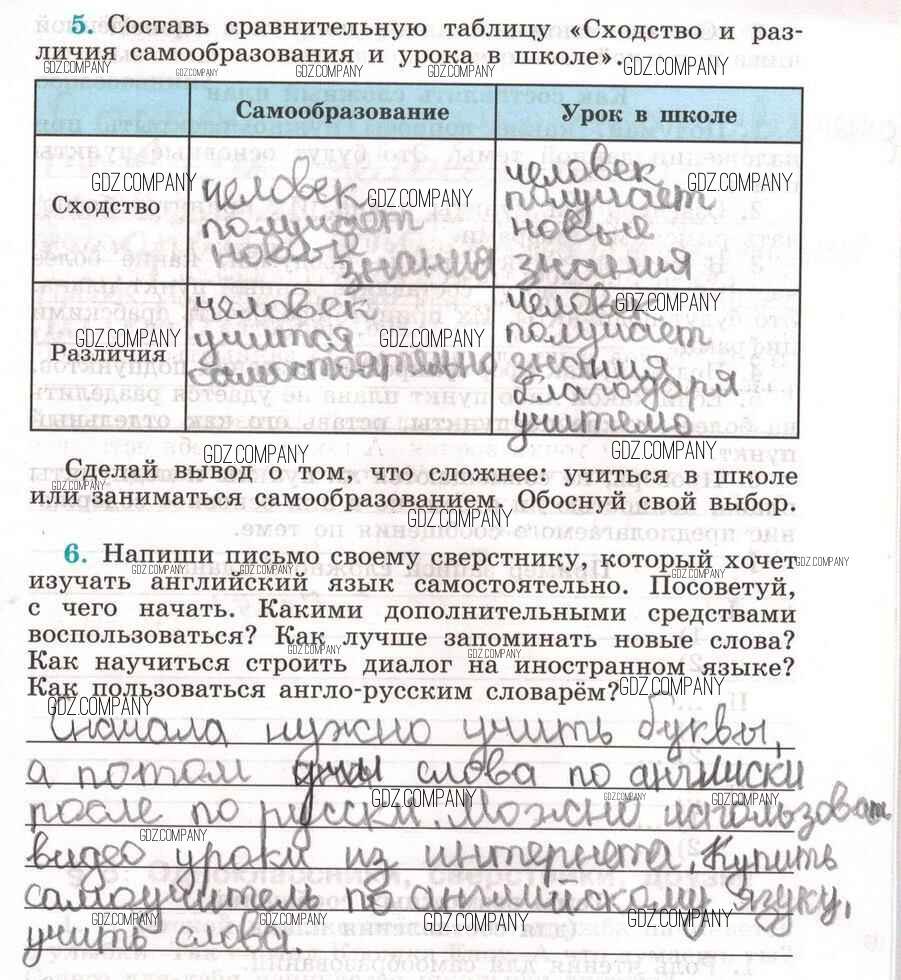 5. Составь сравнительную таблицу «Сходство и раз-
личия самообразования и урока в школе».
Самообразование
Урок в школе
Сходство
человек
получает
новые
знания
человек
получает
новые
знания
Различия
человек
учится
самостоятельно
человек
получает
знания
благодаря
учителю
Сделай вывод о том, что сложнее: учиться в школе
или заниматься самообразованием. Обоснуй свой выбор.
6. Напиши письмо своему сверстнику, который хочет
изучать английский язык самостоятельно. Посоветуй,
с чего начать. Какими дополнительными средствами
воспользоваться? Как лучше запоминать новые слова?
Как научиться строить диалог на иностранном языке?
Как пользоваться англо-русским словарём?
Сначала нужно учить буквы,
а потом слова по англиски
после по русски. Можно использоват
видео уроки из интернета. Купить
самоучитель по английскому языку,
учить слова.
GDZ.COMPANY